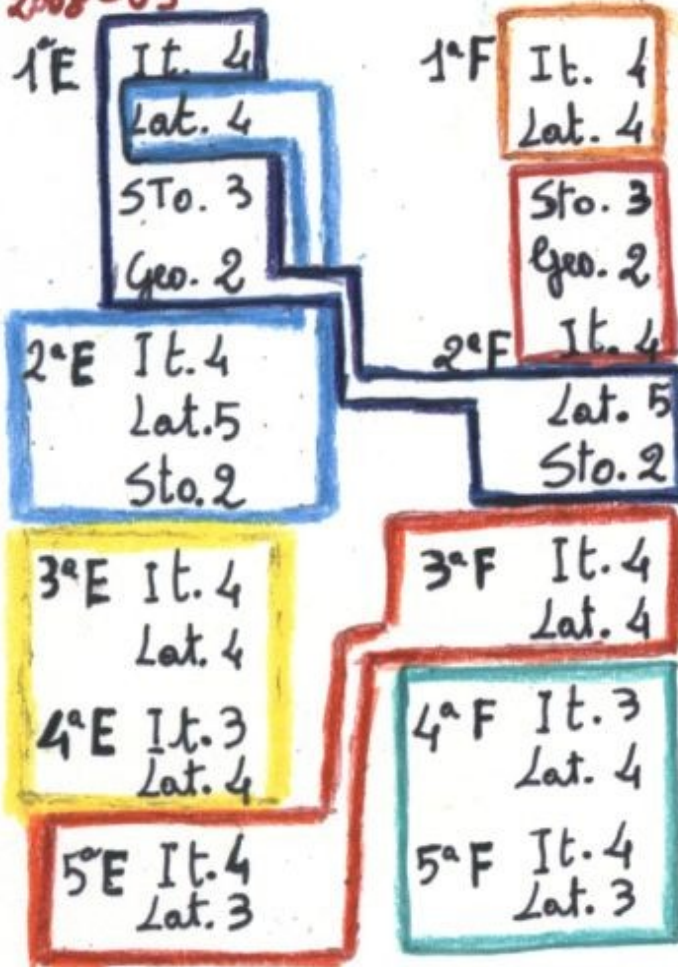 1ªE It. 4
Lat. 4
STo. 3
Geo. 2
2ªE It. 4
Lat. 5
Sto. 2
3ªE It. 4
Lat. 4
4ªE It. 3
Lat. 4
5ªE It. 4
Lat. 3
1ªF It. 4
Lat. 4
Sto. 3
Geo. 2
2ªF It. 4
Lat. 5
Sto. 2
3ªF It. 4
Lat. 4
4ªF It. 3
Lat. 4
5ªF It. 4
Lat. 3